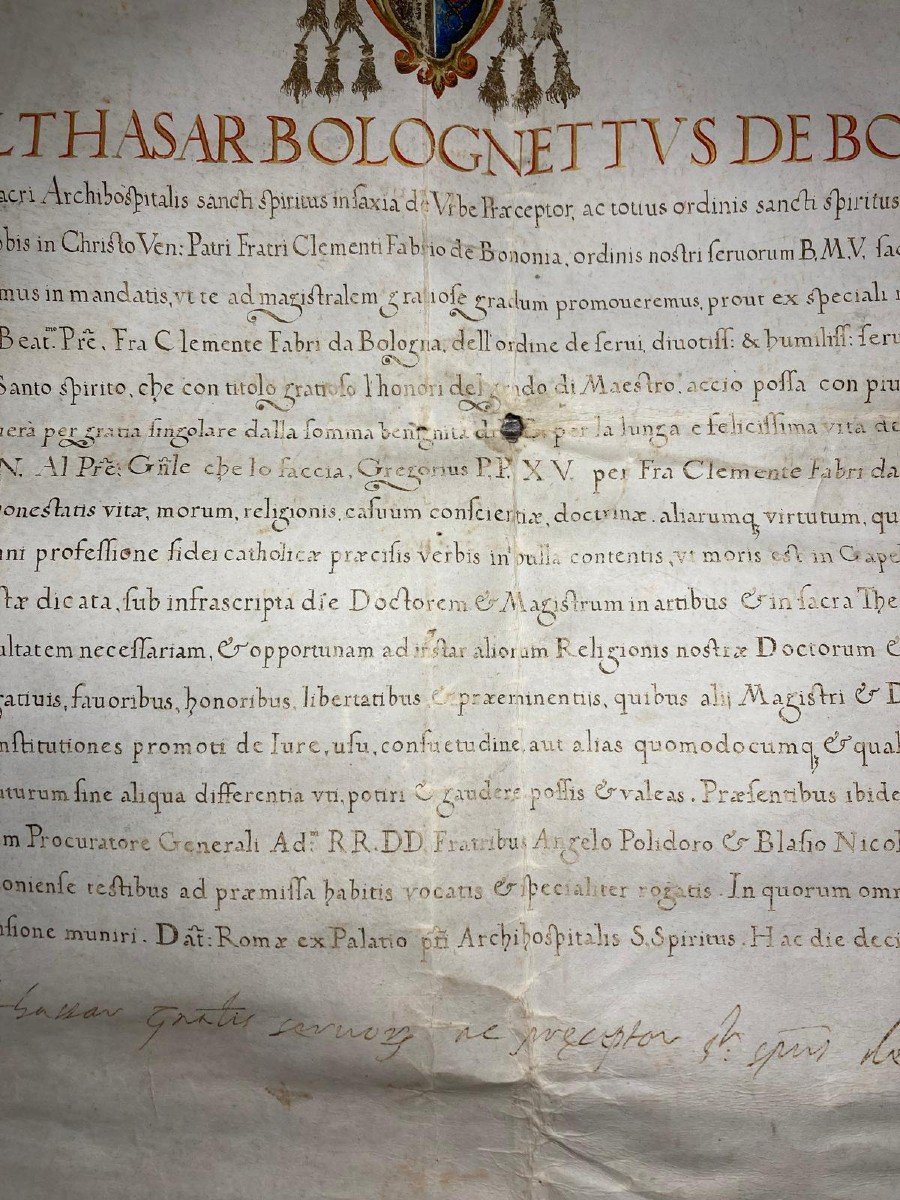 LTHASAR BOLOGNETTVS DE BO
acri Archihospitalis sancti spiritus in saxia de Vrbe Præceptor, ac totius ordinis sancti spiritus
obis in Christo Ven: Patri Fratri Clementi Fabrio de Bononia, ordinis nostri seruorum B.M.V. sac
mus in mandatis, vt te ad magistralem gratiose gradum promoueremus, prout ex speciali
Beat.me Prē. Fra Clemente Fabri da Bologna, dell'ordine de serui, diuotiss: & humiliss: seru
Santo spirito, che con titolo gratioso l'honori del grado di Maestro, accio possa con piu
uerà per gratia singolare dalla somma benignita di per la lunga e felicissima vita de
N. Al Prē: Gn̄le che lo faccia, Gregorius P.P. XV. per Fra Clemente Fabri da
onestatis vitæ, morum, religionis, casuum conscientiæ, doctrinæ. aliarumq virtutum, qu
ani professione fidei catholicæ præcisis verbis in bulla contentis, vt moris est in Capel
stæ dicata, sub infrascripta die Doctorem & Magistrum in artibus & in sacra The
ultatem necessariam, & opportunam ad instar aliorum Religionis nostræ Doctorum &
gatiuis, fauoribus, honoribus, libertatibus & præeminentijs, quibus alij Magistri & D
nstitutiones promoti de Iure, usu, consuetudine, aut alias quomodocumq & qual
uturum sine aliqua differentia vti, potiri & gaudere possis & valeas. Præsentibus ibide
m Procuratore Generali Ad.m RR.DD. Fratribus Angelo Polidoro & Blasio Nicol
oniense testibus ad præmissa habitis vocatis & specialiter rogatis. In quorum omn
nsione muniri. Dat̄: Romæ ex Palatio ptī Archihospitalis S. Spiritus. Hac die deci
thassar gn̄alis seruorum ac præceptor Sti. spūs de